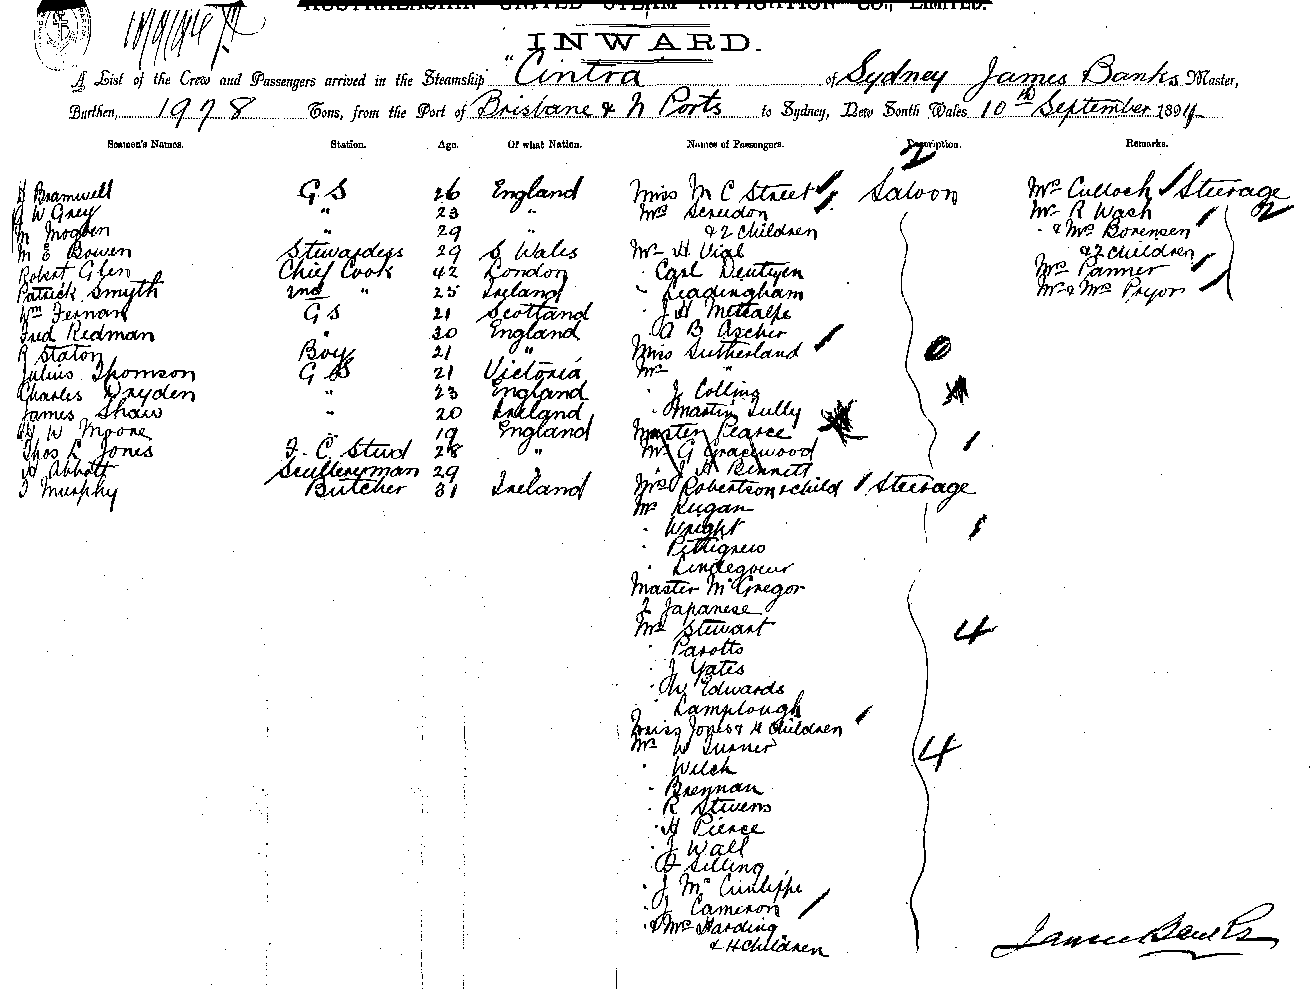 AUSTRALASIAN UNITED STEAM NAVIGATION CO., LIMITED.
INWARD.
A List of the Crew and Passengers arrived in the Steamship "Cintra of Sydney James Banks Master,
Burthen, 1978 Tons, from the Port of Brisbane & N Ports to Sydney, New South Wales 10th September 1894
Seamen's Names. Station. Age. Of what Nation. Names of Passengers. Description. Remarks.
2
H Bramwell G S 26 England Miss M C Street Saloon Mr Culloch Steerage
W Grey " 23 " Mrs & 2 children Mr R Wash 2
M " 29 " Mr H Vial & Mrs Sorensen
M E Bowen Stewardess 29 S Wales Carl & 2 children
Robert Glen Chief Cook 42 London Leadingham Mrs Panner
Patrick Smyth 2nd " 25 Ireland J H Metcalfe Mr & Mrs Pryor
Wm Fernan G S 21 Scotland A B Ascher
Fred Redman " 30 England Miss Sutherland
R Staton Boy 21 " Mr "
Julius Thomson G S 21 Victoria J Colling
Charles Dryden " 23 England Martin Tully
James Shaw " 20 Ireland Master Pearce
W Moore 19 England Mr G Gracewood
Thos L Jones F. C. Stwd 28 " J A Bennett
A Abbott Sculleryman 29
J Murphy Butcher 31 Ireland Mrs Robertson & child Steerage
Mr Kugan
" Wright
" Pettigrew
"
Master McGregor
2 Japanese
Mr Stewart 4
" Parotto
" J Yates
" W Edwards
" Lamplough
Miss Jones & 4 Children
Mr W Turner 4
" Welch
" Brennan
" R Stevens
" H Pierce
" J Wall
" Silling
" J Mc
" J Cameron
" & Mrs Harding
& 4 Children
James Banks